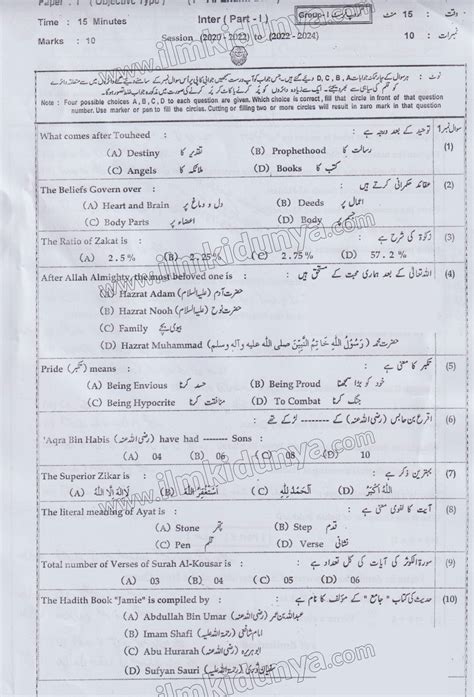 Paper : I (Objective Type)
Time : 15 Minutes Inter ( Part - I ) Group - I گروپ پہلا وقت : 15 منٹ
Marks : 10 Session (2020 - 2022) to (2022 - 2024) نمبرات : 10
Note : Four possible choices A, B, C, D to each question are given. Which choice is correct, fill that circle in front of that question number. Use marker or pen to fill the circles. Cutting or filling two or more circles will result in zero mark in that question
سوال نمبر 1
What comes after Touheed توحید کے بعد درجہ ہے : (1)
(A) Destiny تقدیر کا (B) Prophethood رسالت کا
(C) Angels ملائکہ کا (D) Books کتب کا
The Beliefs Govern over : عقائد حکمرانی کرتے ہیں : (2)
(A) Heart and Brain دل و دماغ پر (B) Deeds اعمال پر
(C) Body Parts اعضاء پر (D) Body جسم پر
The Ratio of Zakat is : زکوٰۃ کی شرح ہے : (3)
(A) 2.5% (B) 2.25% (C) 2.75% (D) 57.2%
After Allah Almighty, the most beloved one is : اللہ تعالیٰ کے بعد ہماری محبت کے مستحق ہیں : (4)
(A) Hazrat Adam (علیہ السلام) حضرت آدم
(B) Hazrat Nooh (علیہ السلام) حضرت نوح
(C) Family بیوی بچے
(D) Hazrat Muhammad (رَسُوْلُ اللّٰہِ خَاتَمُ النَّبِیّٖنَ صلی اللہ علیہ وآلہ وسلم) حضرت محمد
Pride (تکبر) means : تکبر کا معنی ہے : (5)
(A) Being Envious حسد کرنا (B) Being Proud خود کو بڑا سمجھنا
(C) Being Hypocrite منافقت کرنا (D) To Combat جنگ کرنا
اقرع بن حابس (رضی اللہ عنہ) کے ------- لڑکے تھے (6)
'Aqra Bin Habis (رضی اللہ عنہ) have had ------- Sons :
(A) 04 (B) 06 (C) 08 (D) 10
The Superior Zikar is : بہترین ذکر ہے : (7)
(A) لَا اِلٰہَ اِلَّا اللّٰہُ (B) اَسْتَغْفِرُ اللّٰہَ (C) اَلْحَمْدُ لِلّٰہِ (D) اَللّٰہُ اَکْبَرُ
The literal meaning of Ayat is : آیت کا لغوی معنی ہے : (8)
(A) Stone پتھر (B) Step قدم
(C) Pen قلم (D) Verse نشانی
Total number of Verses of Surah Al-Kousar is : سورۃ الکوثر کی آیات کی کل تعداد ہے : (9)
(A) 03 (B) 04 (C) 05 (D) 06
The Hadith Book "Jamie" is compiled by : حدیث کی کتاب " جامع " کے مؤلف کا نام ہے : (10)
(A) Abdullah Bin Umar (رضی اللہ عنہ) عبداللہ بن عمر
(B) Imam Shafi (رحمۃ اللہ علیہ) امام شافعی
(C) Abu Hurarah (رضی اللہ عنہ) ابوہریرہ
(D) Sufyan Sauri (رحمۃ اللہ علیہ) سفیان ثوری
www.ilmkidunya.com